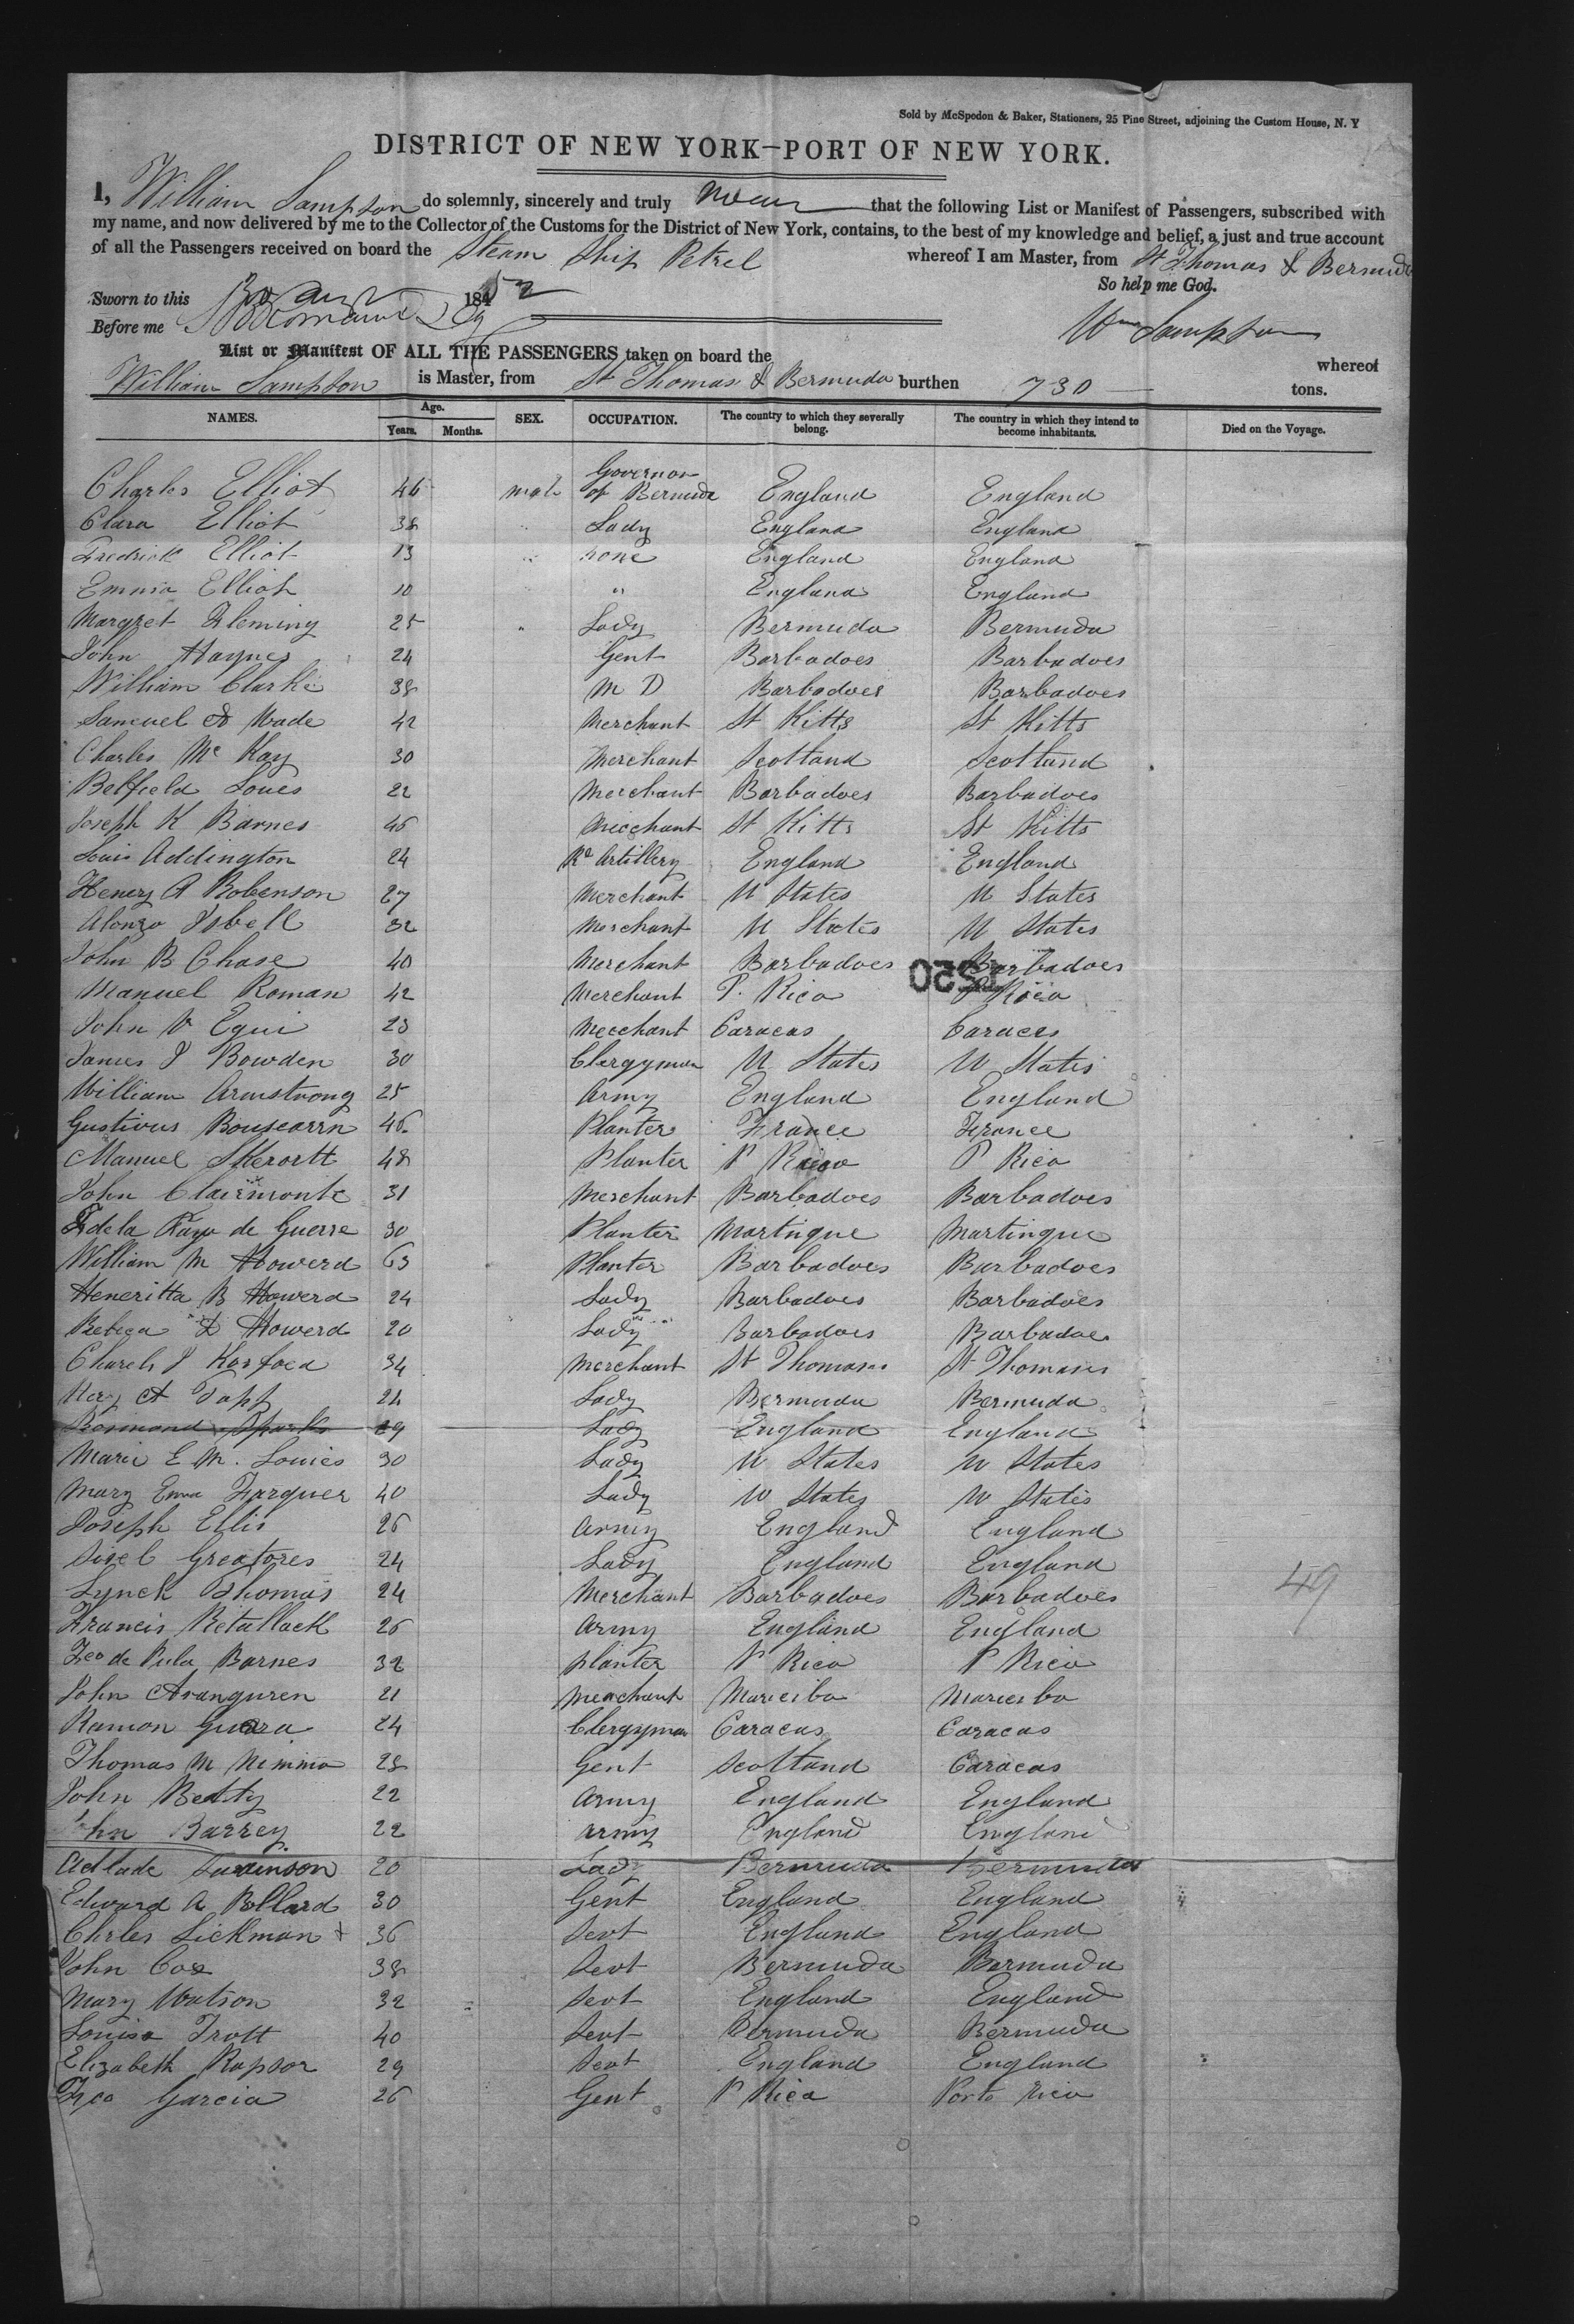 Sold by McSpedon & Baker, Stationers, 25 Pine Street, adjoining the Custom House, N. Y
DISTRICT OF NEW YORK—PORT OF NEW YORK.
I, William Sampson do solemnly, sincerely and truly swear that the following List or Manifest of Passengers, subscribed with
my name, and now delivered by me to the Collector of the Customs for the District of New York, contains, to the best of my knowledge and belief, a just and true account
of all the Passengers received on board the Steam Ship Petrel whereof I am Master, from St Thomas & Bermuda
So help me God.
Sworn to this 184 52
Before me
Wm Sampson
List or Manifest OF ALL THE PASSENGERS taken on board the whereof
William Sampson is Master, from St Thomas & Bermuda burthen 730 tons.
NAMES. Age. Years. Months. SEX. OCCUPATION. The country to which they severally belong. The country in which they intend to become inhabitants. Died on the Voyage.
Charles Elliot 46 male Governor of Bermuda England England
Clara Elliot 38 " Lady England England
Fredrick Elliot 13 " none England England
Emma Elliot 10 " England England
Margret Fleming 25 " Lady Bermuda Bermuda
John Haynes 24 Gent Barbadoes Barbadoes
William Clarke 38 M D Barbadoes Barbadoes
Samuel Wade 42 Merchant St Kitts St Kitts
Charles Mc Kay 30 Merchant Scotland Scotland
Belfield Loues 22 Merchant Barbadoes Barbadoes
Joseph K Barnes 46 Merchant St Kitts St Kitts
Louis Addington 24 Rl Artillery England England
Henery A Robenson 27 Merchant U States U States
Alonzo Isbell 32 Merchant U States U States
John B Chase 40 Merchant Barbadoes Barbadoes
1520
Manuel Roman 42 Merchant P. Rico P Rico
John V Egui 23 Merchant Caracas Caracas
James J Bowden 30 Clergyman U States U States
William Armstrong 25 Army England England
Gustivus Bouscarrn 46 Planter France France
Manuel Skerortt 48 Planter P Rico P Rico
John Clairmonte 31 Merchant Barbadoes Barbadoes
F de la Raya de Guerre 30 Planter Martinque Martinque
William M Howerd 63 Planter Barbadoes Barbadoes
Heneritta B Howerd 24 Lady Barbadoes Barbadoes
Rebeca D Howerd 20 Lady Barbadoes Barbadoes
Charels J 34 Merchant St Thomases St Thomases
Mary A Tapp 24 Lady Bermuda Bermuda
Rosmond Sparks 29 Lady England England
Marie E M. Louies 30 Lady U States U States
Mary Emma Farquer 40 Lady U States U States
Joseph Ellis 26 Army England England
Sisel Greatores 24 Lady England England
Lynch Thomas 24 Merchant Barbadoes Barbadoes
49
Francis Retallack 26 Army England England
Fco de Pula Barnes 32 planter P Rico P Rico
John Aranguren 21 Merchant Mareciba Mareciba
Ramon Guara 24 Clergyman Caracas Caracas
Thomas M Nimmo 28 Gent Scotland Caracas
John Beatty 22 Army England England
John Barrey 22 Army England England
Adlade 20 Lady Bermuda Bermuda
Edward A Bollard 30 Gent England England
Chrles Sickman + 36 Sevt England England
John Cox 38 Sevt Bermuda Bermuda
Mary Watson 32 Sevt England England
Louisa Trott 40 Sevt Bermuda Bermuda
Elizabeth Rapsor 29 Sevt England England
Fco Garcia 26 Gent P Rico Porto Rico